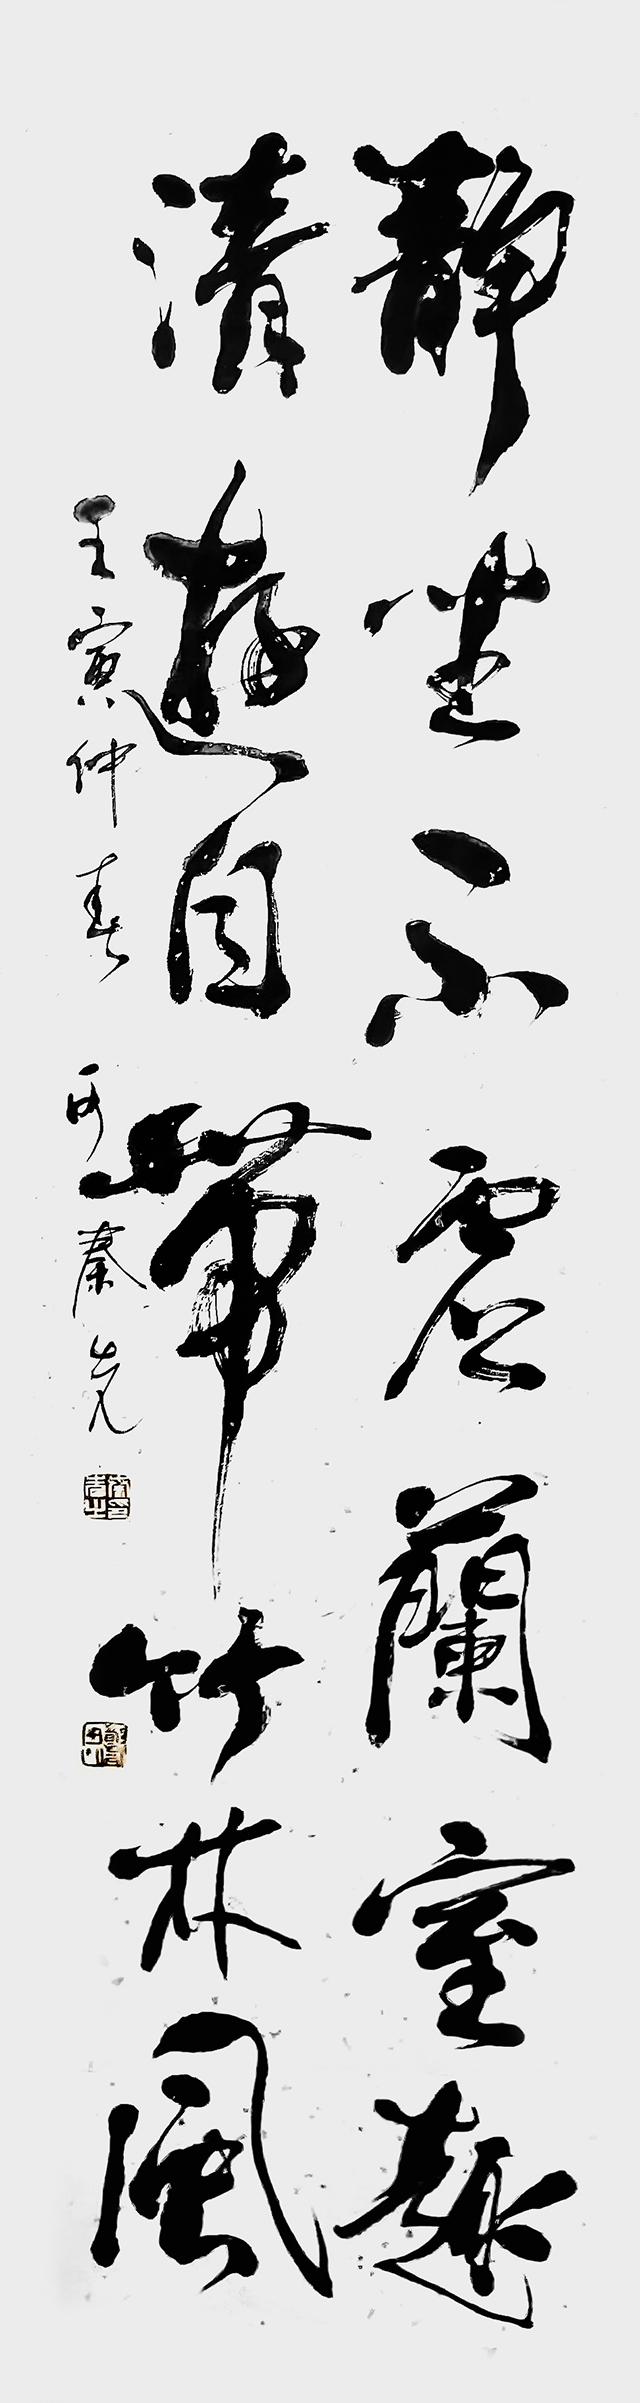 靜坐不虛蘭室趣
清遊自帶竹林風
壬寅仲春 秦先